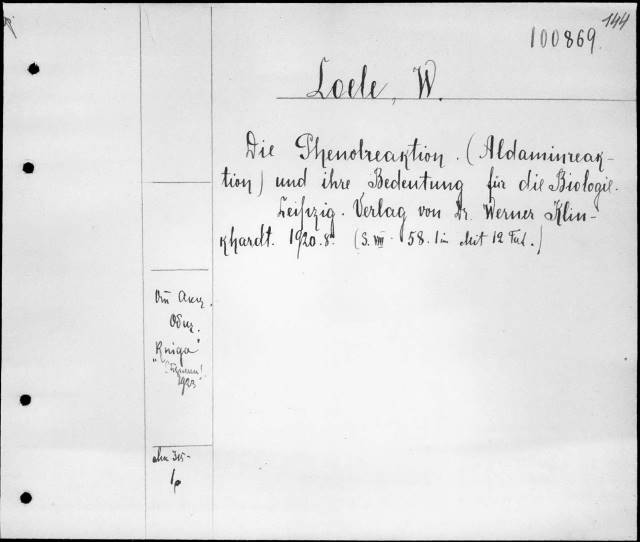 144
100869.
Loele, W.
Die Phenolreaktion. (Aldaminreak-
tion) und ihre Bedeutung für die Biologie.
Leipzig. Verlag von Dr. Werner Klin-
khardt. 1920. 8°. (S. VIII. 58. 1 in Mit 12 Tab.)
"Kniga"
1923